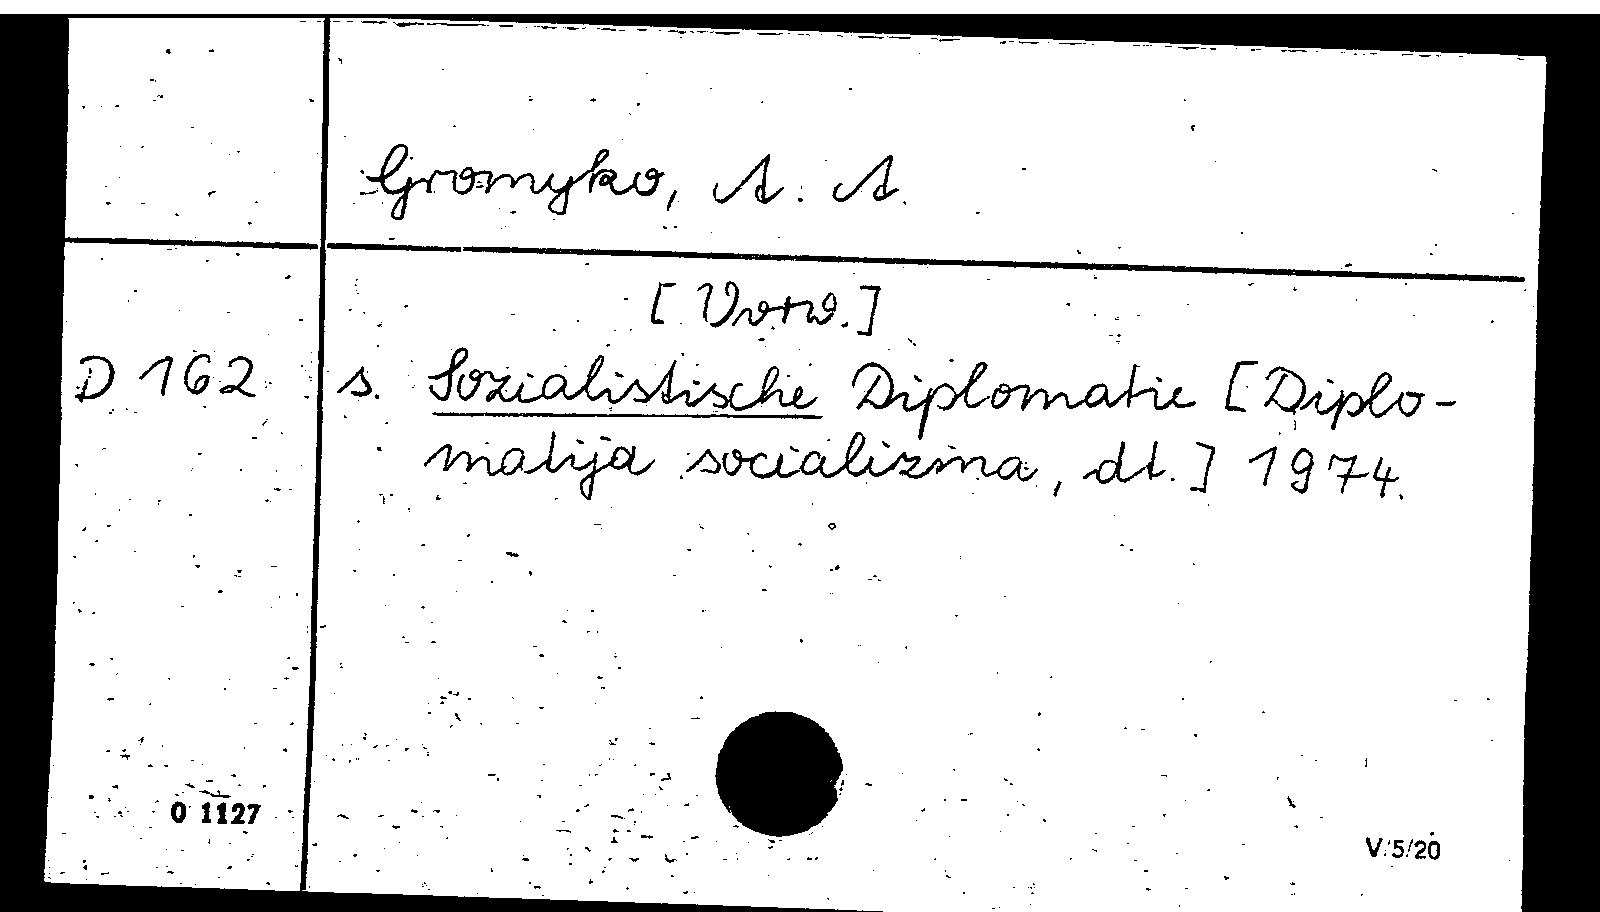 Gromyko, A. A.
[Vorw.]
D 162 s. Sozialistische Diplomatie [Diplo-
matija socializma, dt.] 1974.
0 1127
V/5/20